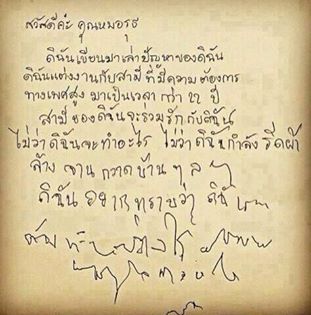 สวัสดีค่ะ คุณหมอรุจ
ดิฉันเขียนมาเล่าปัญหาของดิฉัน
ดิฉันแต่งงานกับสามี ที่มีความต้องการ
ทางเพศสูง มาเป็นเวลา กว่า 22 ปี
สามี ของดิฉันจะร่วมรักกับดิฉัน
ไม่ว่าดิฉันจะทำอะไร ไม่ว่าดิฉันกำลัง รีดผ้า
ล้าง จาน กวาดบ้าน ฯลฯ
ดิฉัน อยากทราบว่า